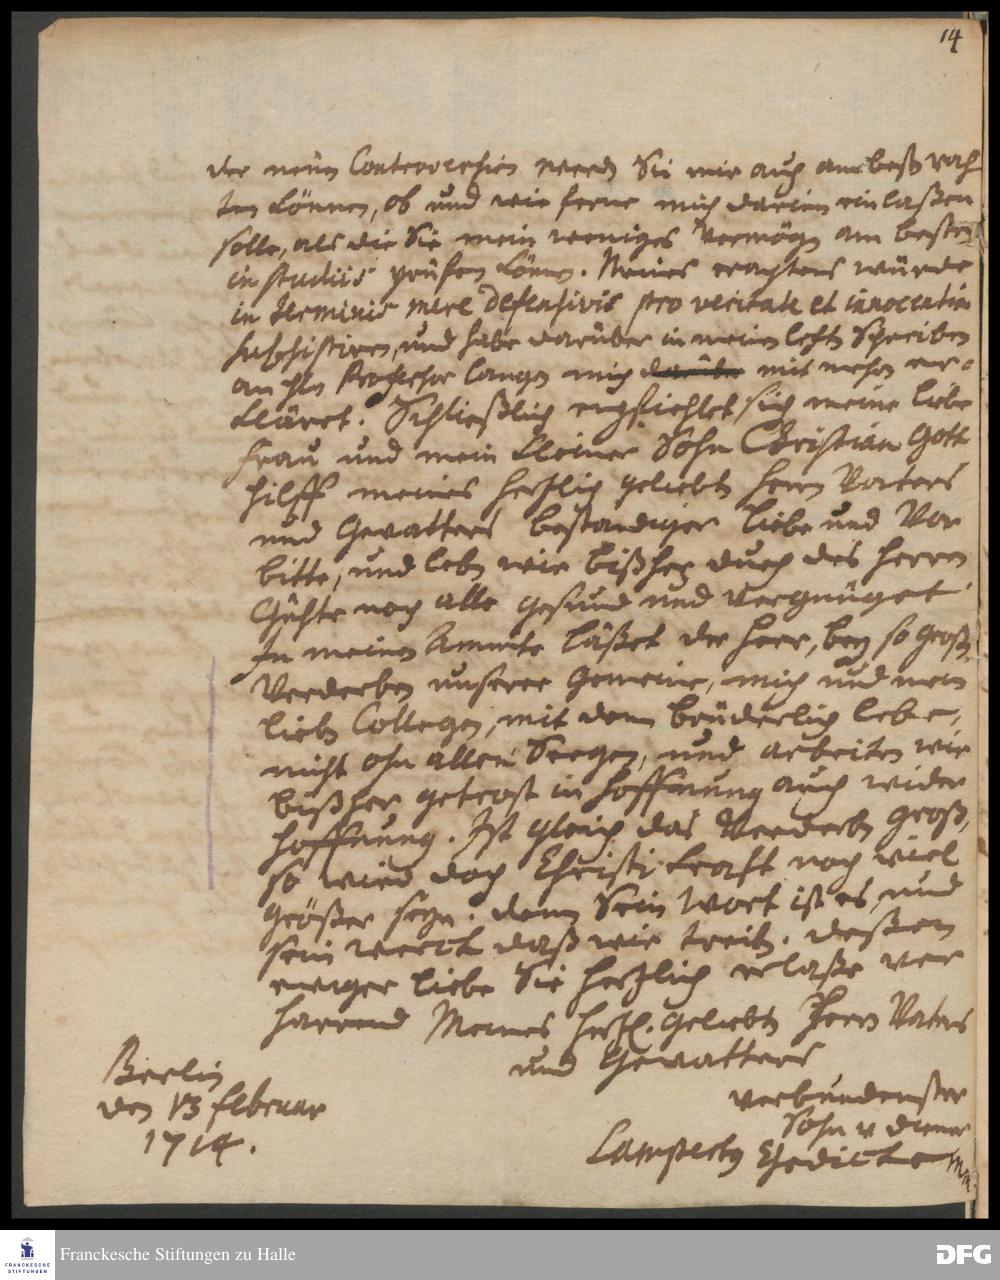 14
der neuen Controversien werden Sie mir auch am besten rath
ten können, ob und wie ferne mich darein einlaßen
solle, als die Sie mein weniges Vermögen am besten
in studiis prüfen können. Meines erachtens würde
in terminis mere defensivis pro veritate et innocentia
subsistiren, und habe darüber in meinen letzten Schreiben
an Hln Professor Langen mich mit mehren er-
kläret. Schließlich empfiehlet sich meine liebe
Frau und mein kleiner Sohn Christian Gott
hilff meines hertzlich geliebten Herrn Vaters
und Gevatters beständiger Liebe und Vor
bitte, und leben wir bißher durch des Herrn
Gühte noch alle gesund und vergnüget.
In meinen Ammte läßet der Herr, bey so großen
Verderben unserer Gemeine, mich und mein
lieben Collegen, mit dem brüderlich lebe,
nicht ohn allen Seegen, und arbeiten wir
bißher getrost in Hoffnung auch wider
Hoffnung. Ist gleich das Verderben groß,
so wird doch Christi krafft noch viel
größer seyn. denn Sein Wort ist es, und
sein werck daß wir treiben. deßen
ewiger liebe Sie hertzlich erlaße ver
harrend Meines hertzl. geliebten Herrn Vaters
und Gevatters
verbundenster
Sohn u diener
Lampertus Gedicke
Berlin
den 13 februar
1714.
Franckesche Stiftungen zu Halle
FRANCKESCHE
STIFTUNGEN
DFG